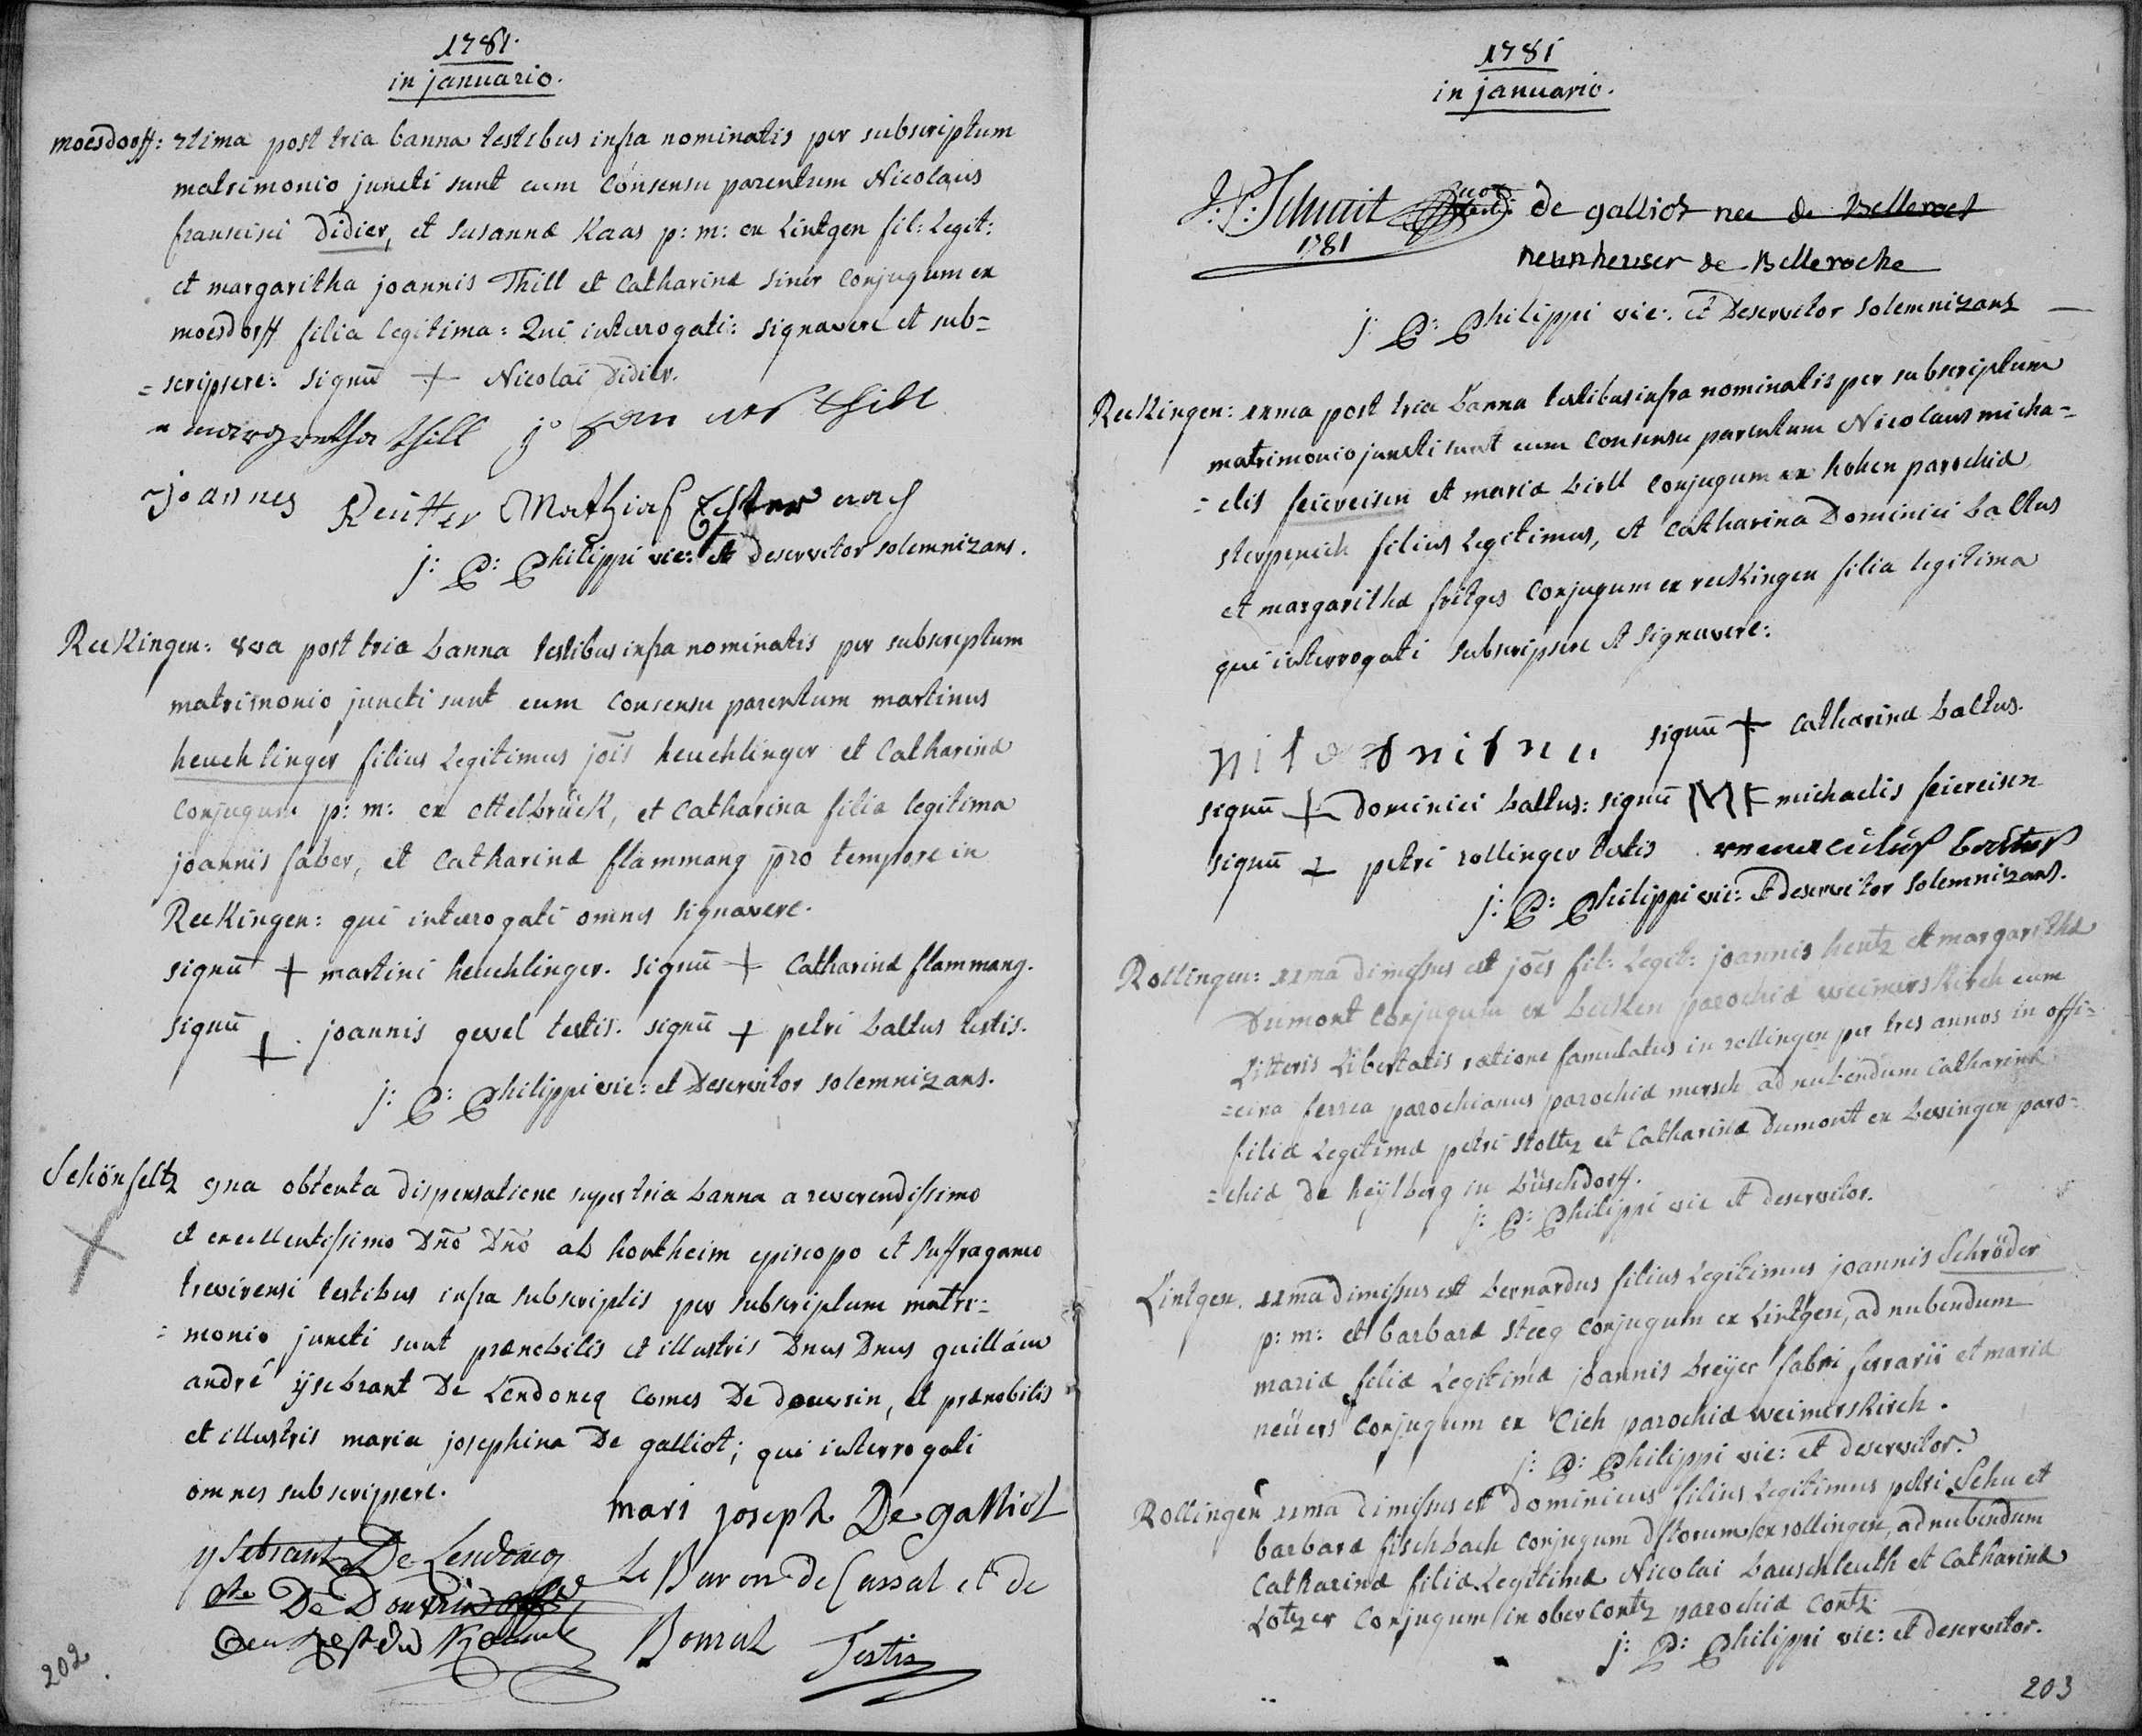 1781.
in januario.
moesdorff: 7tima post tria banna testibus infra nominatis per subscriptum
matrimonio juncti sunt cum consensu parentum Nicolaus
francisci Didier, et susannæ Kaas p: m: ex Lintgen fil: Legit:
et margaritha joannis Thill et Catharinæ siner conjugum ex
moesdorff filia legitima: Qui interrogati: signavere et sub=
=scripsere: signu + Nicolai Didier.
margretha thill
joannes Reütter Mathias
j: P: Philippi vic: et deservitor solemnizans.
Reckingen: 8va post tria banna testibus infra nominatis per subscriptum
matrimonio juncti sunt cum consensu parentum martinus
heuchlinger filius Legitimus jois heuchlinger et Catharinæ
conjugum p: m: ex ettelbrück, et Catharina filia legitima
joannis faber, et Catharinæ flammang pro tempore in
Reckingen: qui interrogati omnes signavere.
signu + martini heuchlinger. signu + Catharinæ flammang.
signu + joannis gevel testis. signu + petri baltus testis.
j: P: Philippi vic: et Deservitor solemnizans.
Schönfeltz 9na obtenta dispensatione super tria banna a reverendissimo
et excellentissimo Dno Dno ab hontheim episcopo et suffraganeo
trevirensi testibus infra subscriptis per subscriptum matri=
=monio juncti sunt prænobilis et illustris Dnus Dnus guillám
andré ijsebrant De Lendoncq comes De douvrin, et prænobilis
et illustris maria josephina De galliot; qui interrogati
omnes subscripsere.
mari joseph De galliot
ysebrant De Lendoncq
cte De Douvrin
Le Baron de Cassal et de
Bomal Testis
202
1781
in januario.
J: P: Schmit testis de galliot nee de Belleroct
1781
neunheuser de Belleroche
j: P: Philippi vic: et Deservitor solemnizans
Reckingen: 11ma post tria banna testibus infra nominatis per subscriptum
matrimonio juncti sunt cum consensu parentum Nicolaus micha=
=elis feiereisen et mariæ biell conjugum ex hohen parochiæ
sterpenich filius Legitimus, et Catharina Dominici baltus
et margarithæ fritges conjugum ex reckingen filia legitima
qui interrogati subscripsere et signavere:
signu + Catharinæ baltus.
signu + Dominici baltus: signu MF michaelis feiereisen
signu + petri rollinger testis
j: P: Philippi vic: et deservitor solemnizans.
Rollingen: 11ma dimissus est joes fil: Legit: joannis hentz et margarithæ
Dumont conjugum ex beissen parochiæ weimerskirch cum
Litteris Libertatis ratione famulatus in rollingen per tres annos in offi=
=cina ferrea parochianus parochiæ mersch ad nubendum Catharinæ
filiæ Legitimæ petri stoltz et Catharinæ Dumont ex bevingen paro=
=chiæ de heijlberg in büschdorff.
j: P: Philippi vic et deservitor.
Lintgen. 11ma dimissus est bernardus filius Legitimus joannis Schröder
p: m: et barbaræ steeg conjugum ex Lintgen, ad nubendum
mariæ filiæ Legitimæ joannis breijer fabri ferrarii et mariæ
neüers conjugum ex Eich parochiæ weimerskirch.
j: P: Philippi vic: et deservitor.
Rollingen 11ma dimissus est dominicus filius Legitimus petri Schu et
barbaræ fischbach conjugum dstorum ex rollingen, ad nubendum
Catharinæ filiæ Legitimæ Nicolai bauschleuth et Catharinæ
Lotzer conjugum in obercontz parochiæ contz
j: P: Philippi vic: et deservitor.
203